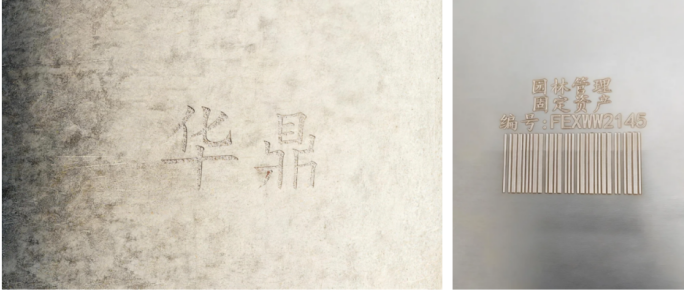 华鼎
固体管理
固定资产
编号:FEXWW2145